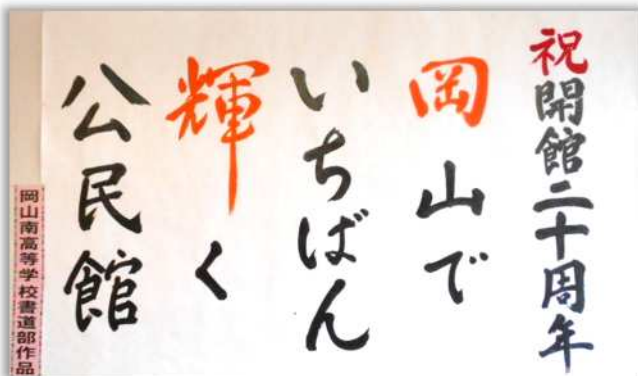 祝開館二十周年
岡山で
いちばん
輝く
公民館
岡山南高等学校書道部作品